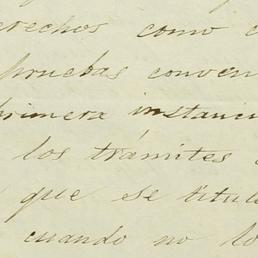 derechos como
pruebas conven
primera instancia
los trámites
que se titule
cuando no lo